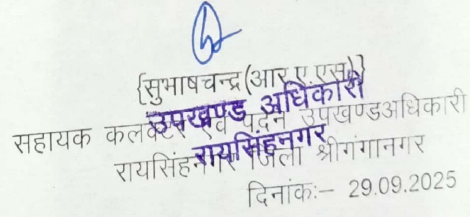 {सुभाषचन्द्र(आर.ए.एस)}
उपखण्ड अधिकारी
सहायक कलक्टर एवं पदेन उपखण्डअधिकारी
रायसिंहनगर
रायसिंहनगर जिला श्रीगंगानगर
दिनांकः– 29.09.2025